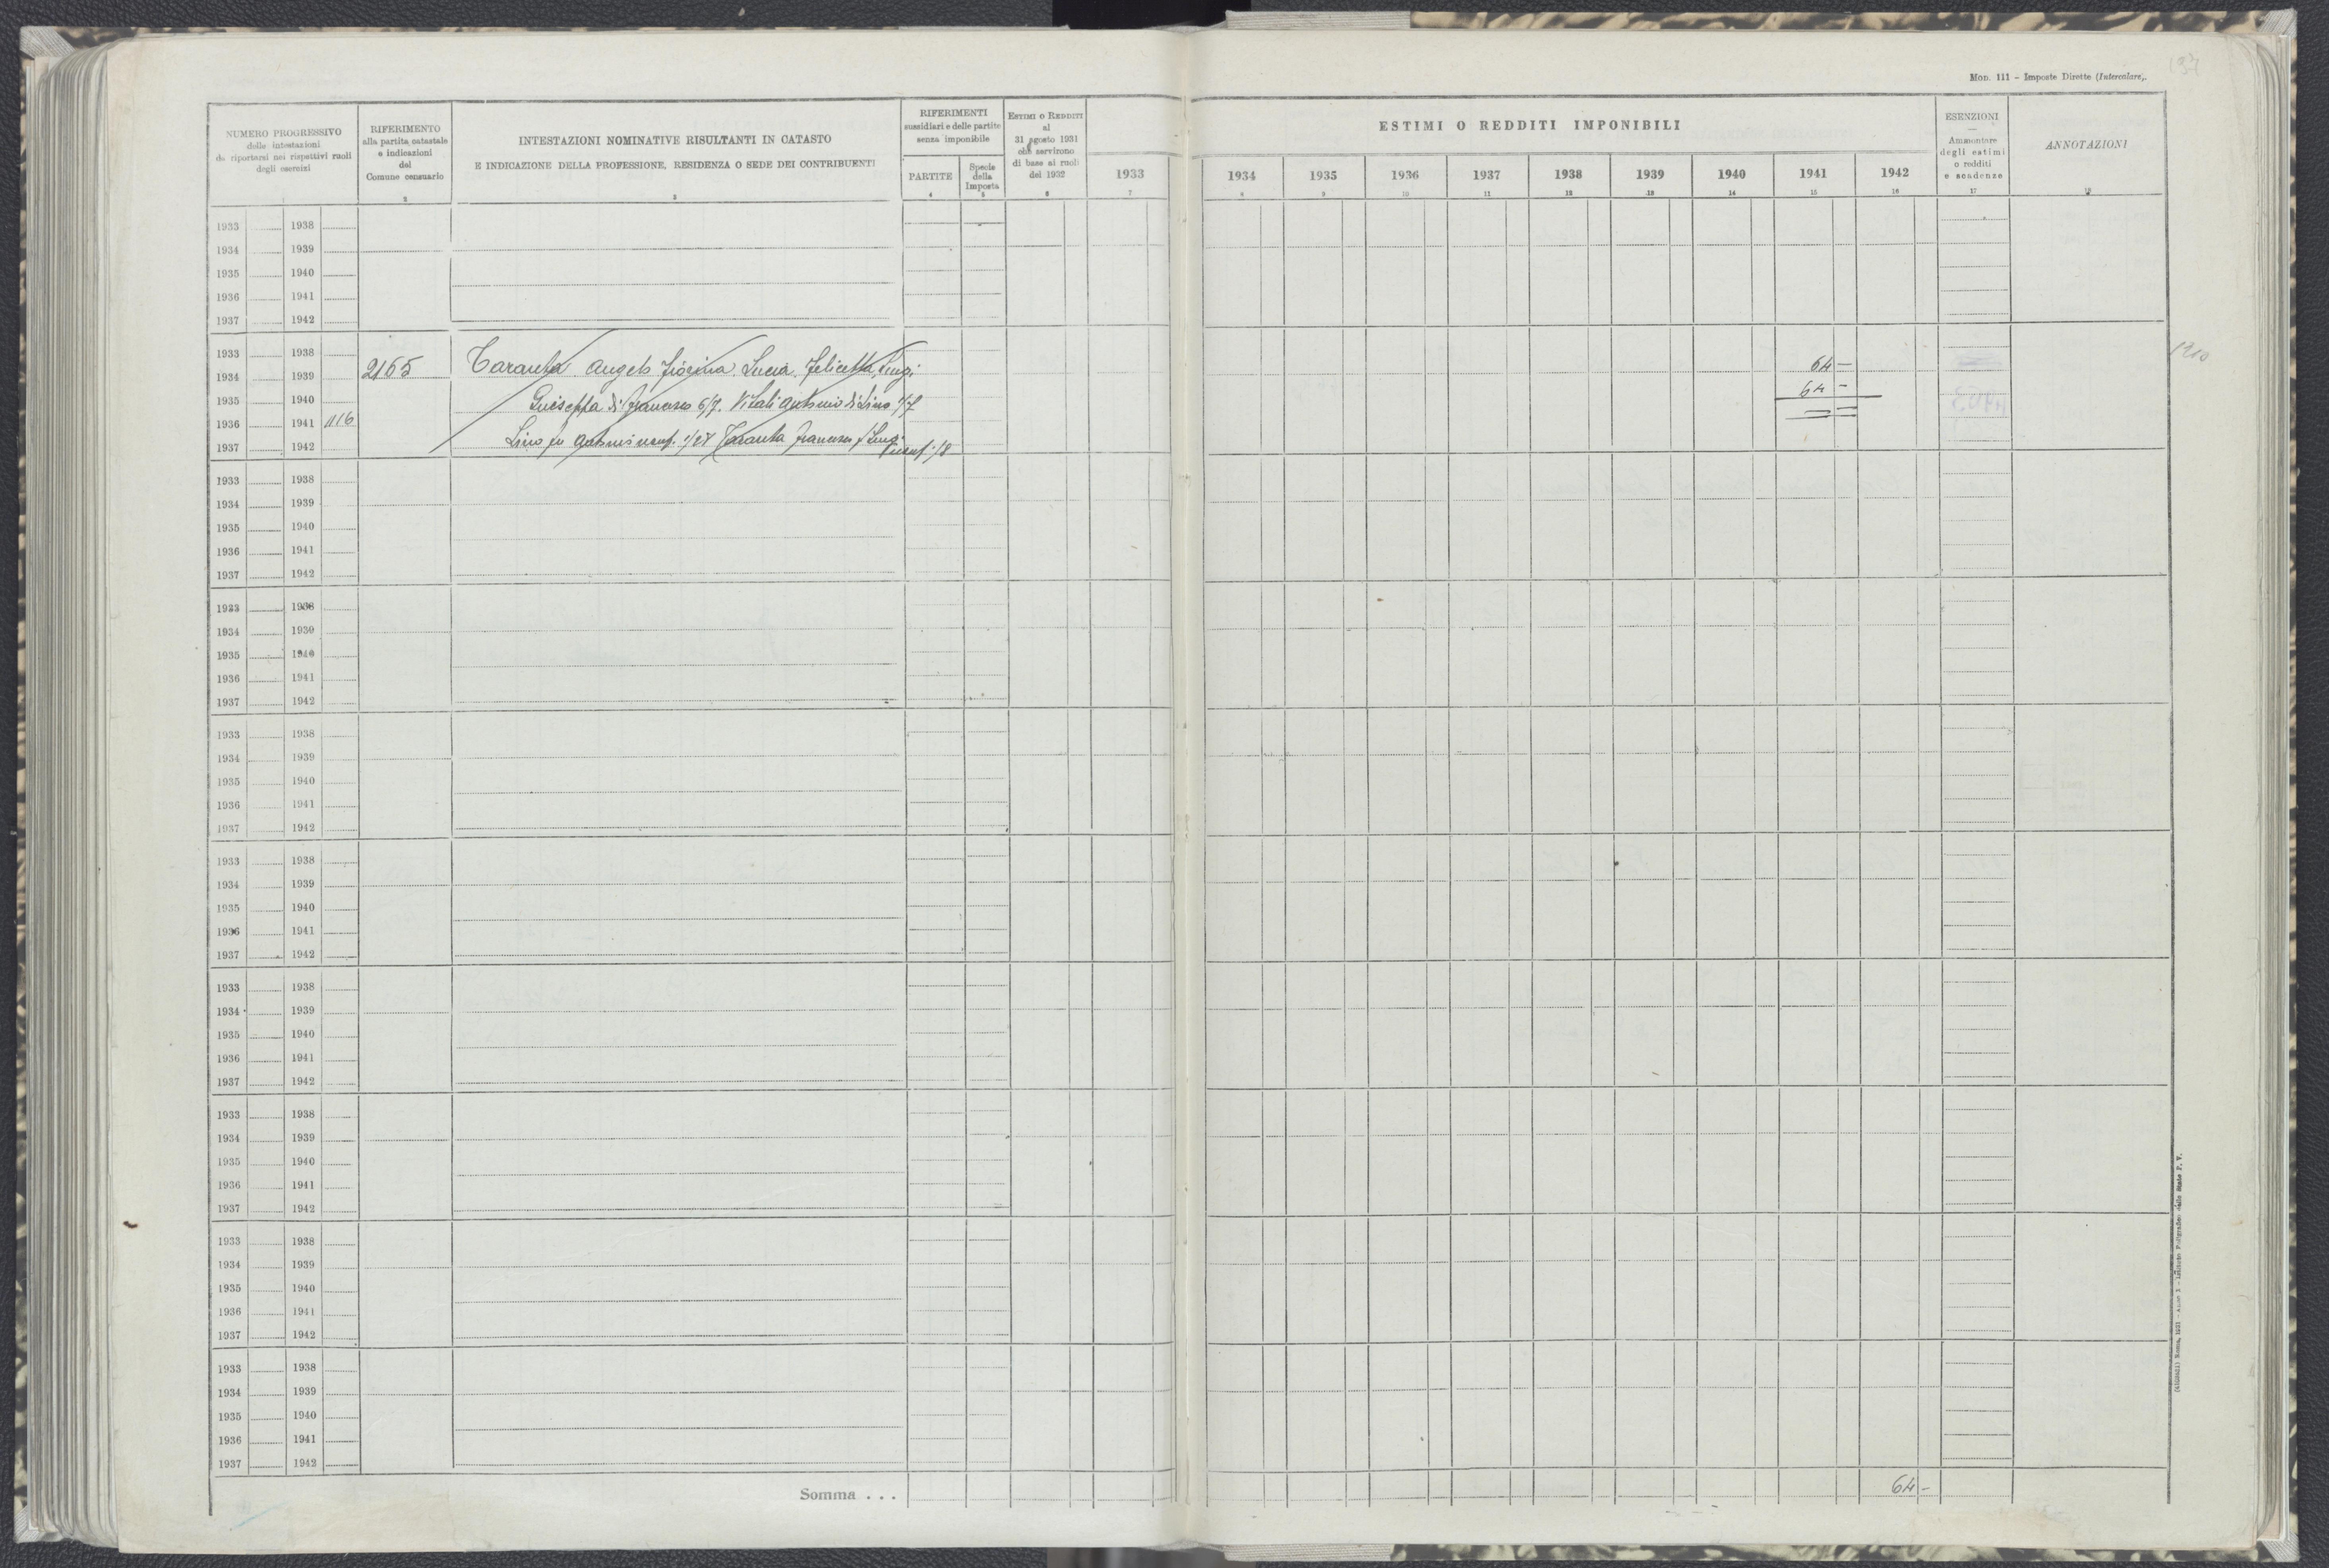 MOD. 111 - Imposte Dirette (Intercalare).
NUMERO PROGRESSIVO
delle intestazioni
da riportarsi nei rispettivi ruoli
degli esercizi
RIFERIMENTO
alla partita catastale
e indicazioni
del
Comune censuario
2
INTESTAZIONI NOMINATIVE RISULTANTI IN CATASTO
E INDICAZIONE DELLA PROFESSIONE, RESIDENZA O SEDE DEI CONTRIBUENTI
3
RIFERIMENTI
sussidiari e delle partite
senza imponibile
PARTITE
4
Specie
della
Imposta
5
ESTIMI O REDDITI
al
31 agosto 1931
che servirono
di base ai ruoli
del 1932
6
1933
7
ESTIMI O REDDITI IMPONIBILI
1934 1935 1936 1937 1938 1939 1940 1941 1942
8 9 10 11 12 13 14 15 16
ESENZIONI
Ammontare
degli estimi
o redditi
e scadenze
17
ANNOTAZIONI
18
1933 1938
1934 1939
1935 1940
1936 1941
1937 1942
1933 1938
1934 1939 2165 Taranta Angelo Fiorina Lucia Felicetta Luigi 64 -
1935 1940 Guiseppa di Francesco 6/7. Vitali Antonio di Lino 1/7 64 -
1936 1941 1116
1937 1942 Lino fu Antonio usuf. Taranta Francesco f Luigi
usuf 1/8
1210
1933 1938
1934 1939
1935 1940
1936 1941
1937 1942
1933 1938
1934 1939
1935 1940
1936 1941
1937 1942
1933 1938
1934 1939
1935 1940
1936 1941
1937 1942
1933 1938
1934 1939
1935 1940
1936 1941
1937 1942
1933 1938
1934 1939
1935 1940
1936 1941
1937 1942
1933 1938
1934 1939
1935 1940
1936 1941
1937 1942
1933 1938
1934 1939
1935 1940
1936 1941
1937 1942
1933 1938
1934 1939
1935 1940
1936 1941
1937 1942
Somma . . . 64 -